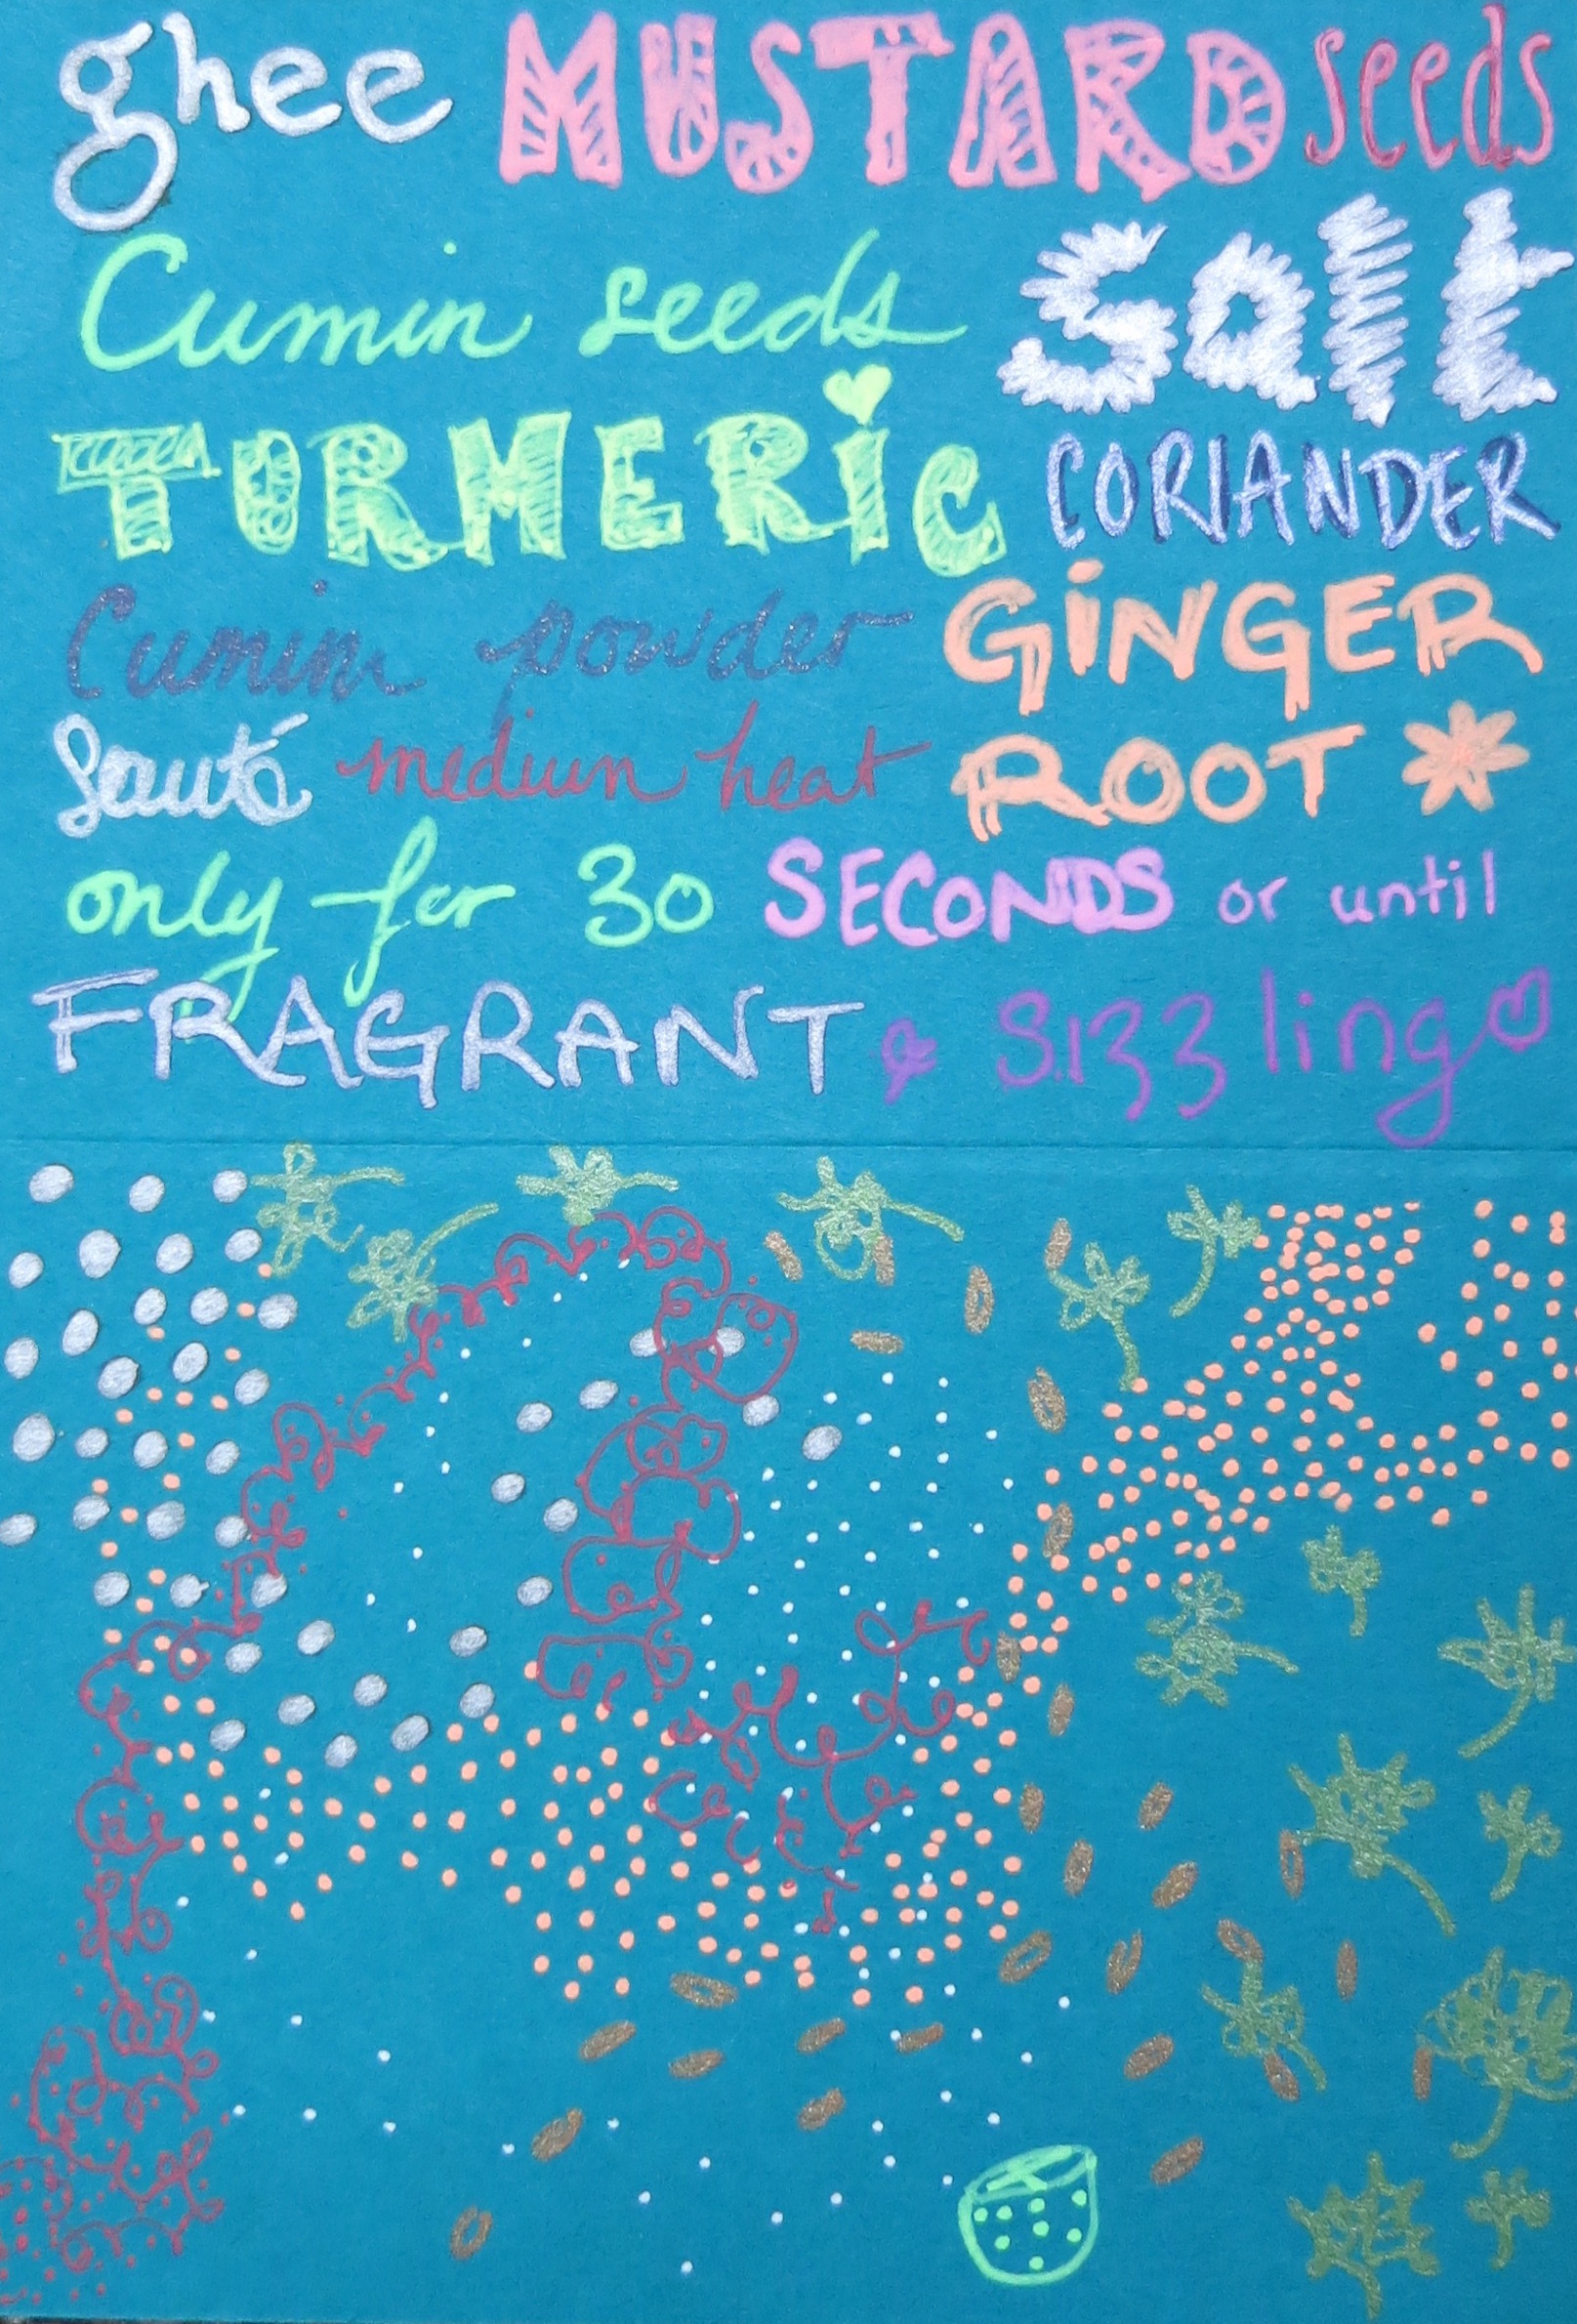 ghee MUSTARD seeds
Cumin seeds salt
TURMERiC CORIANDER
Cumin powder GiNGER
Sauté medium heat ROOT
only for 30 SECONDS or until
FRAGRANT & Sizzling